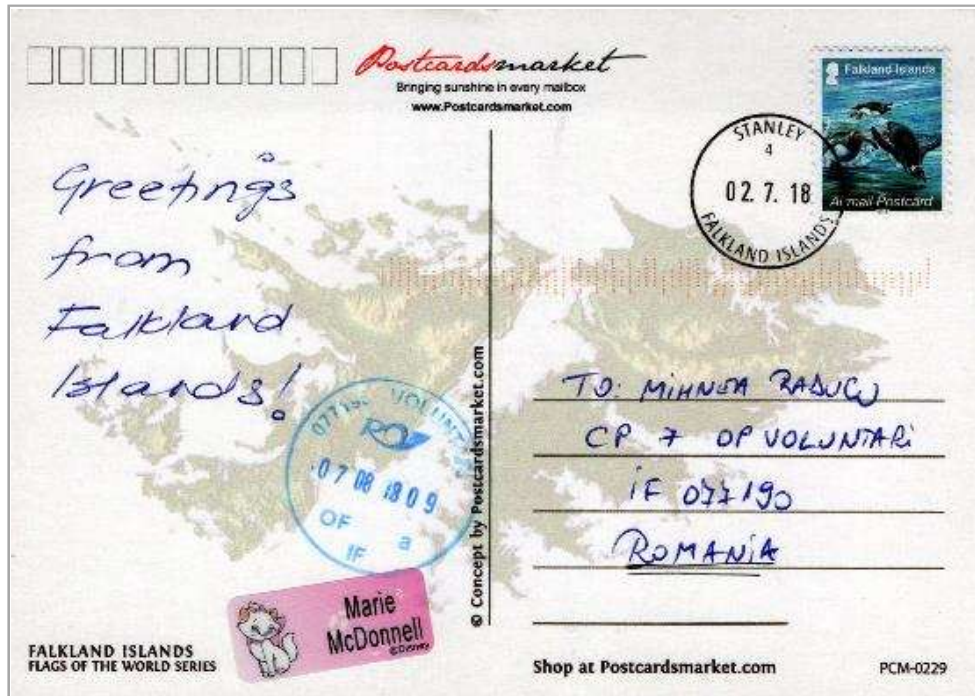 Postcardsmarket
Bringing sunshine in every mailbox
www.Postcardsmarket.com
Falkland Islands
Airmail Postcard
STANLEY
4
02. 7. 18
FALKLAND ISLANDS
Greetings
from
Falkland
Islands!
© Concept by Postcardsmarket.com
TO: MIHNEA RADUCU
CP 7 OP VOLUNTARi
iF 077190
ROMANiA
07 08 18 09
OF a
IF
Marie
McDonnell
©Disney
FALKLAND ISLANDS
FLAGS OF THE WORLD SERIES
Shop at Postcardsmarket.com
PCM-0229